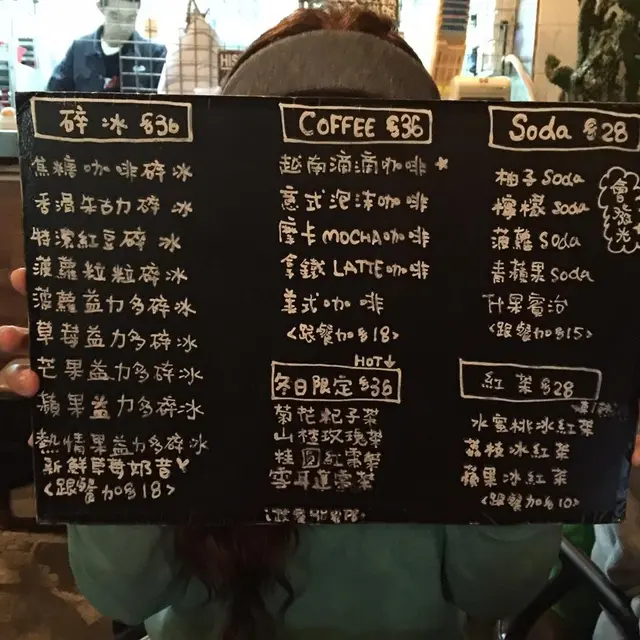 碎冰 $36
焦糖咖啡碎冰
香滑朱古力碎冰
特濃紅豆碎冰
菠蘿粒粒碎冰
菠蘿益力多碎冰
草莓益力多碎冰
芒果益力多碎冰
蘋果益力多碎冰
熱情果益力多碎冰
新鮮草莓奶昔
<跟餐加$18>
COFFEE $36
越南滴滴咖啡
意式泡沫咖啡
摩卡MOCHA咖啡
拿鐵LATTE咖啡
美式咖啡
<跟餐加$18>
HOT↓
冬日限定 $36
菊花杞子茶
山楂玫瑰茶
桂圓紅棗茶
雪耳蓮
Soda $28
柚子Soda
檸檬Soda
菠蘿Soda
青蘋果Soda
什果賓治
<跟餐加$15>
會發光
紅茶 $28
水蜜桃冰紅茶
荔枝冰紅茶
蘋果冰紅茶
<跟餐加$10>